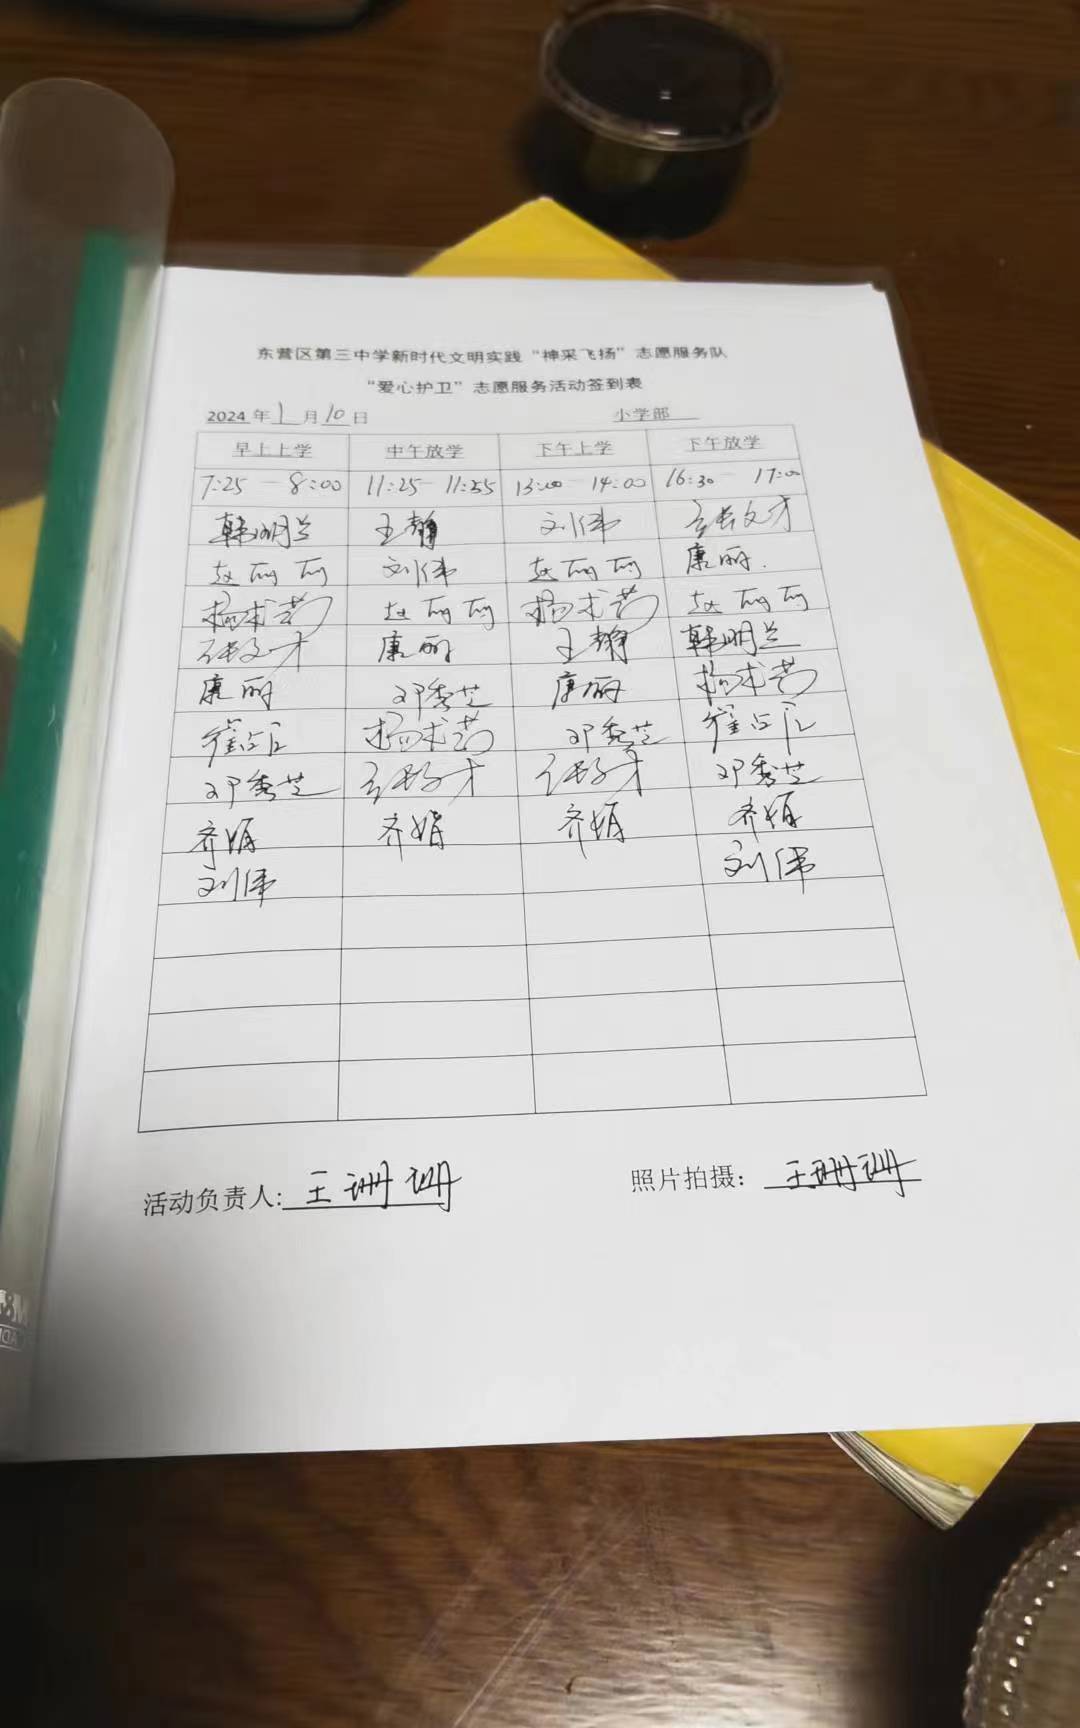 东营区第三中学新时代文明实践“神采飞扬”志愿服务队
“爱心护卫”志愿服务活动签到表
2024 年 1 月 10 日 小学部
早上上学 中午放学 下午上学 下午放学
7:25 — 8:00 11:25 — 11:55 13:00 — 14:00 16:30 — 17:00
韩明兰 王静 刘伟 张文才
赵丽丽 刘伟 赵丽丽 康丽.
杨术芳 赵丽丽 杨术芳 赵丽丽
张文才 康丽 王静 韩明兰
康丽 邓秀芝 康丽 杨术芳
崔占 杨术芳 邓秀芝 崔占
邓秀芝 张文才 张文才 邓秀芝
齐娟 齐娟 齐娟 齐娟
刘伟 刘伟
活动负责人: 王珊珊 照片拍摄: 王珊珊